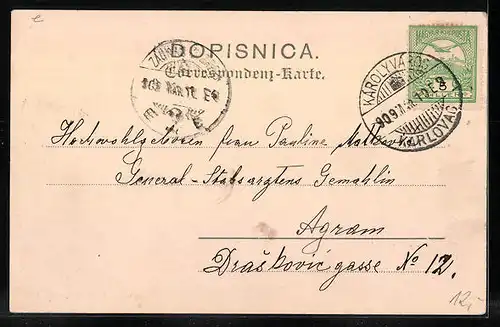 e
DOPISNICA.
Correspondenz-Karte.
KÁROLYVÁROS
KARLOVAC
Hochwohlgeboren frau Pauline
General-Stabsarztens Gemahlin
Agram
Draškovićgasse No 12.
12,-